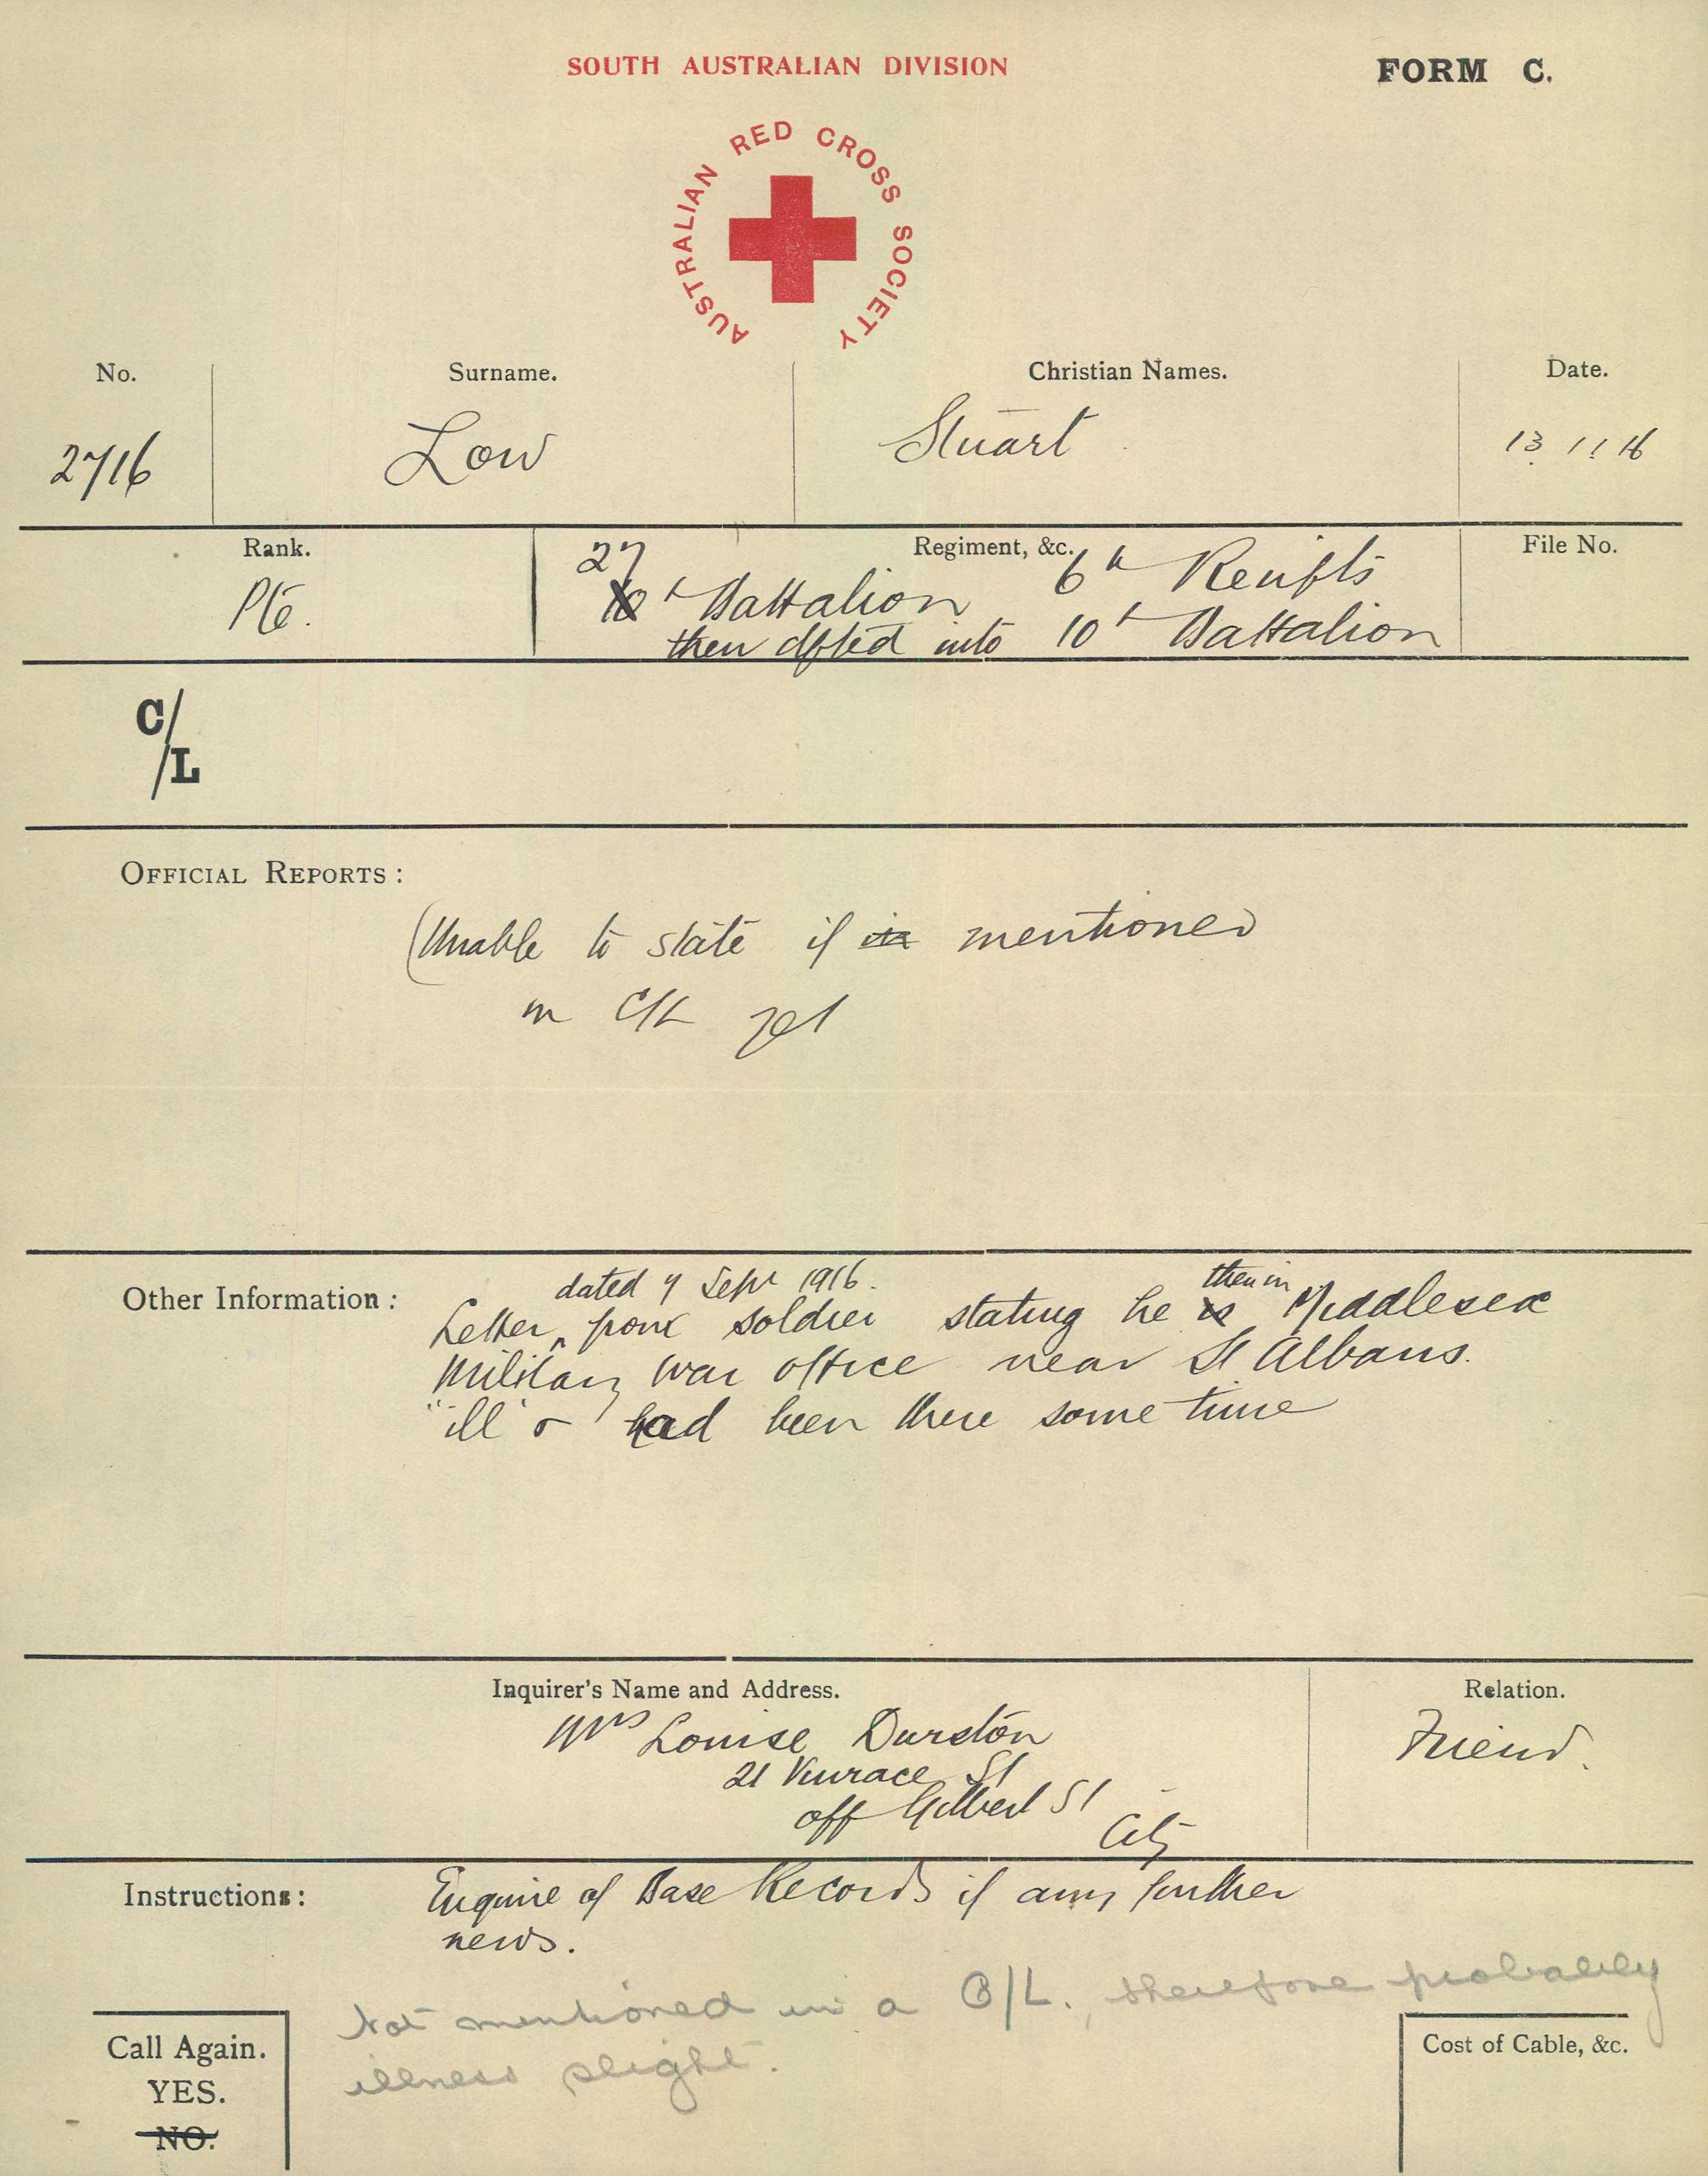 SOUTH AUSTRALIAN DIVISION
FORM C.
AUSTRALIAN RED CROSS SOCIETY
No.
Surname.
Christian Names.
Date.
2716
Low
Stuart
13.11.16
Rank.
Regiment, &c.
File No.
Pte.
27
10th Battalion 6th Reinfts
then dfted into 10th Battalion
C/
/L
OFFICIAL REPORTS :
(Unable to state if is mentioned
in C/L yet
Other Information :
dated 7 Sept 1916. then in
Letter ^ from soldier stating he is Middlesex
Military War office near St Albans.
"ill" & had been there some time
Inquirer's Name and Address.
Relation.
Mrs Louise Durston
Friend.
21 Vinrace St
off Gilbert St
City
Instructions :
Enquire of Base Records if any further
news.
Not mentioned in a C/L. , therefore probably
illness slight.
Call Again.
YES.
NO.
Cost of Cable, &c.